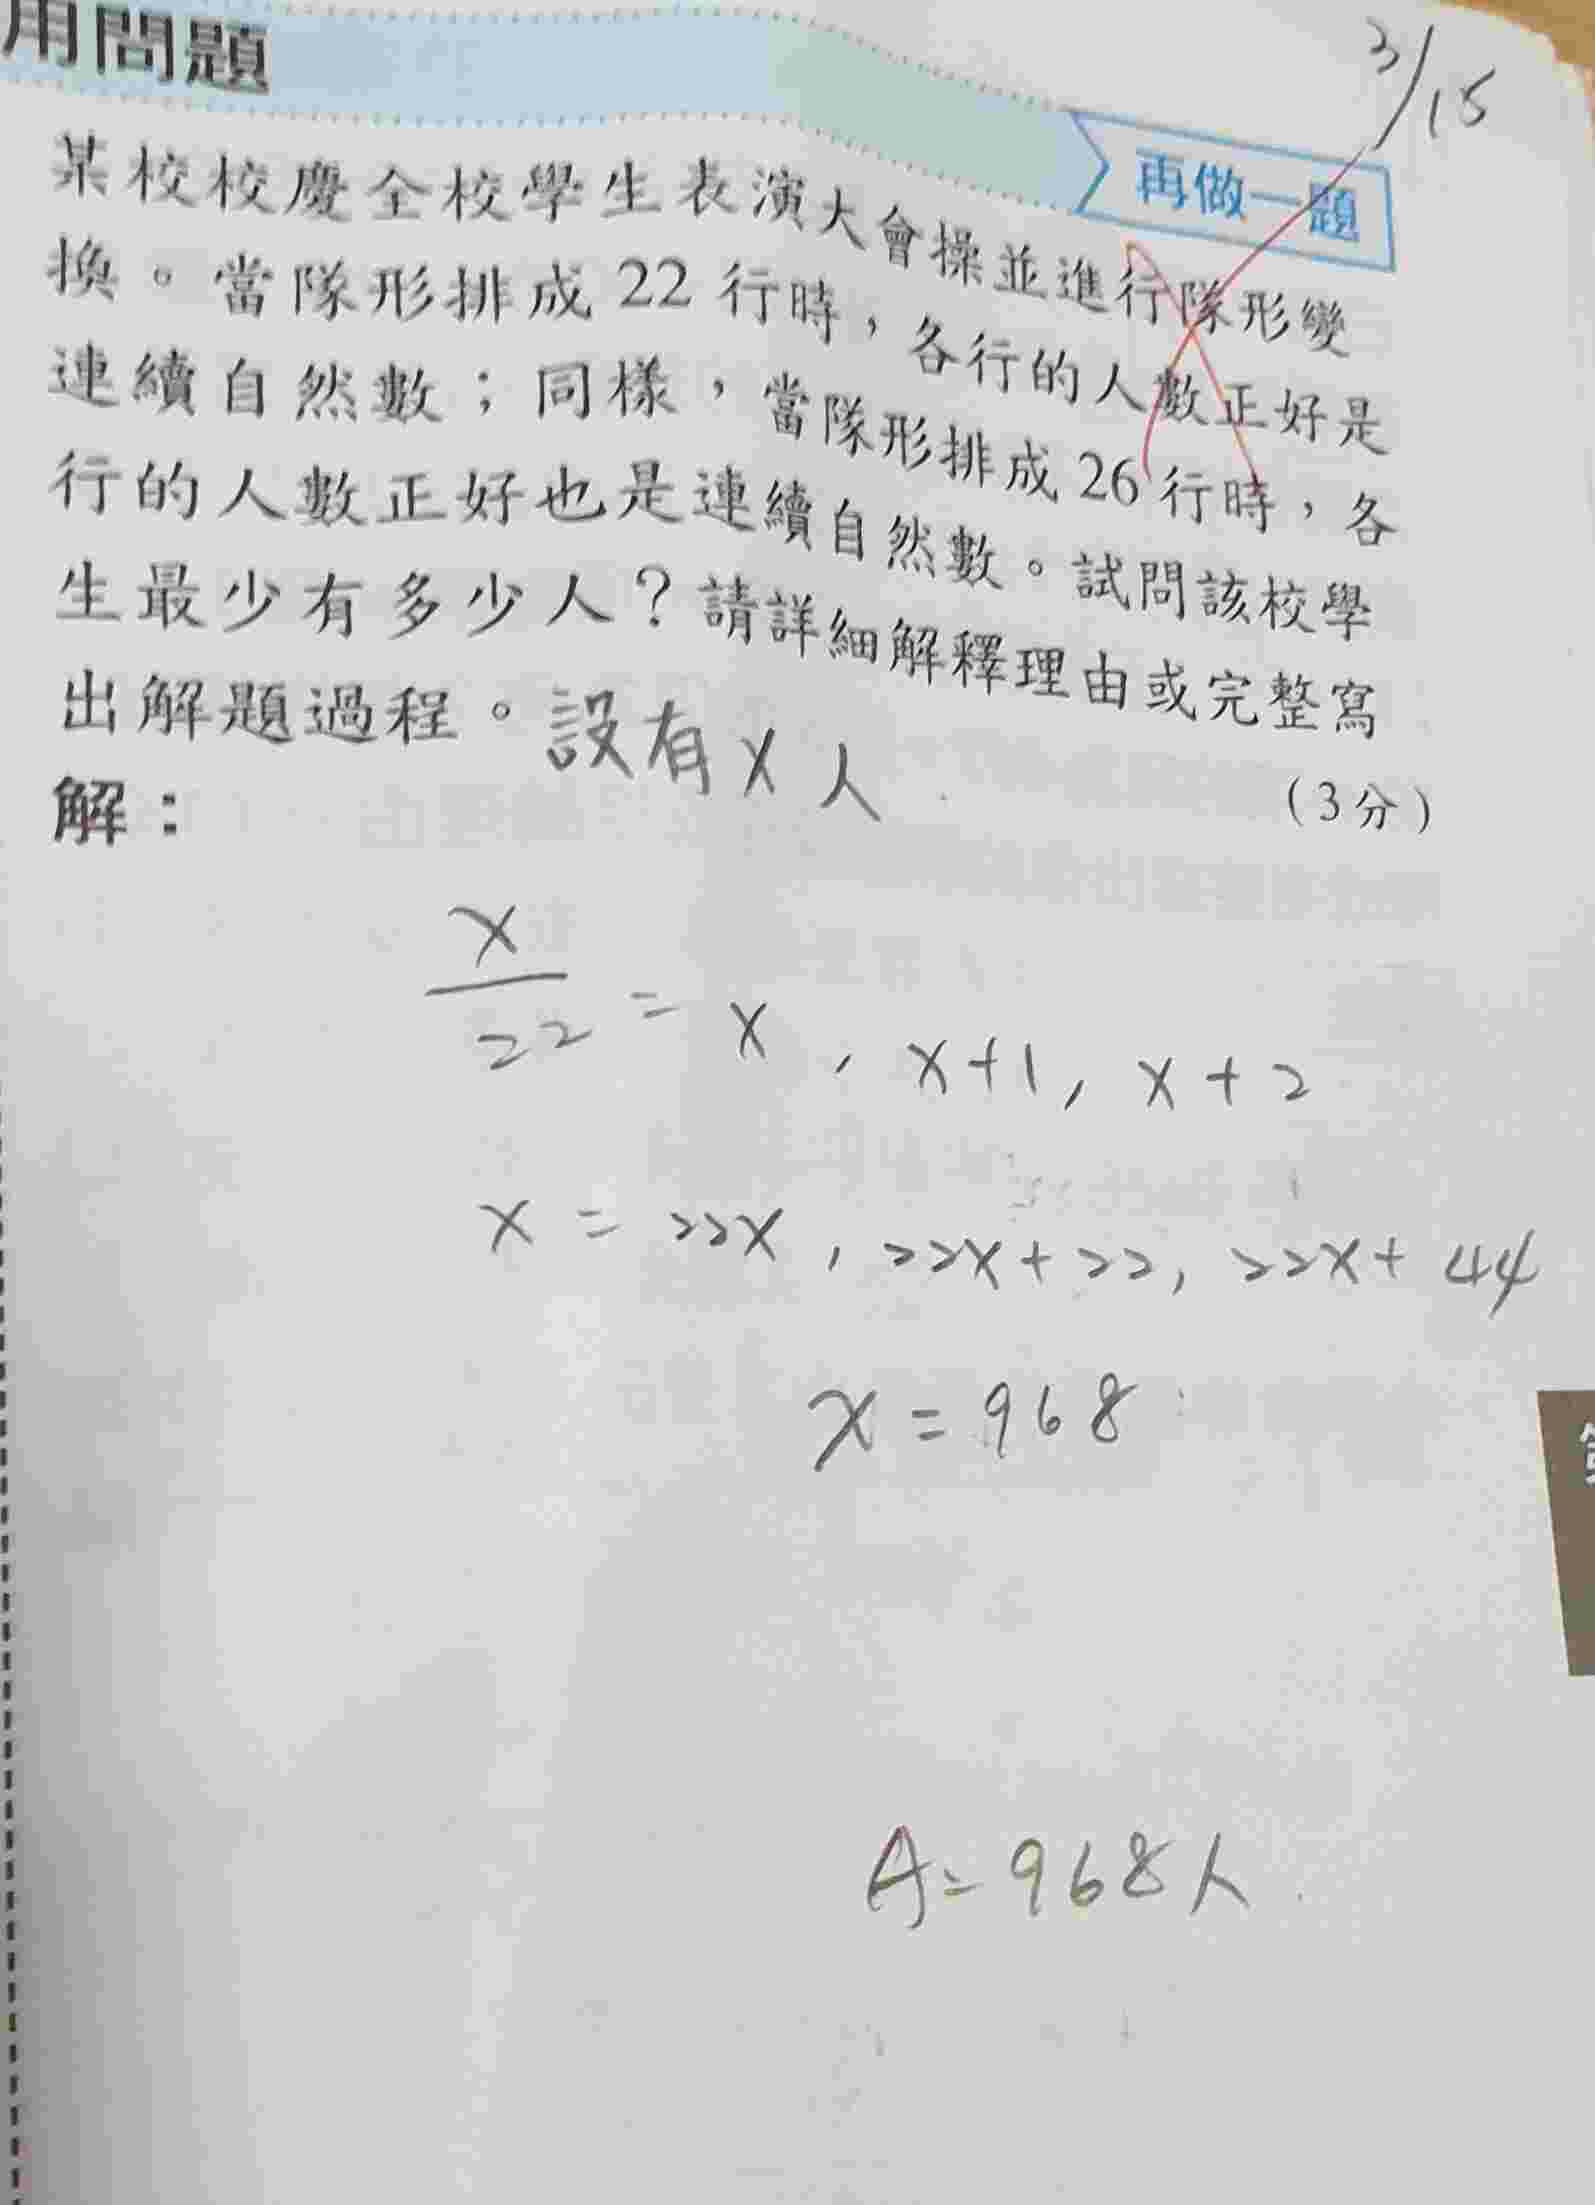 用問題
3/15
再做一題
某校校慶全校學生表演大會操並進行隊形變
換。當隊形排成 22 行時，各行的人數正好是
連續自然數；同樣，當隊形排成 26 行時，各
行的人數正好也是連續自然數。試問該校學
生最少有多少人？請詳細解釋理由或完整寫
出解題過程。設有 x 人
(3分)
解：
x/22 = x , x+1, x+2
x = 22x , 22x+22, 22x+44
x = 968
A= 968人